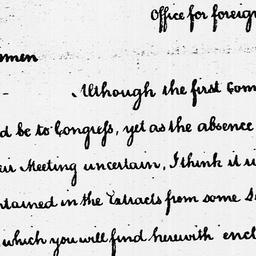 Office for foreig
emen
Although the first Com
d be to Congress, yet as the absence
eir Meeting uncertain, I think it
ntained in the Extracts from some
which you will find herewith encl